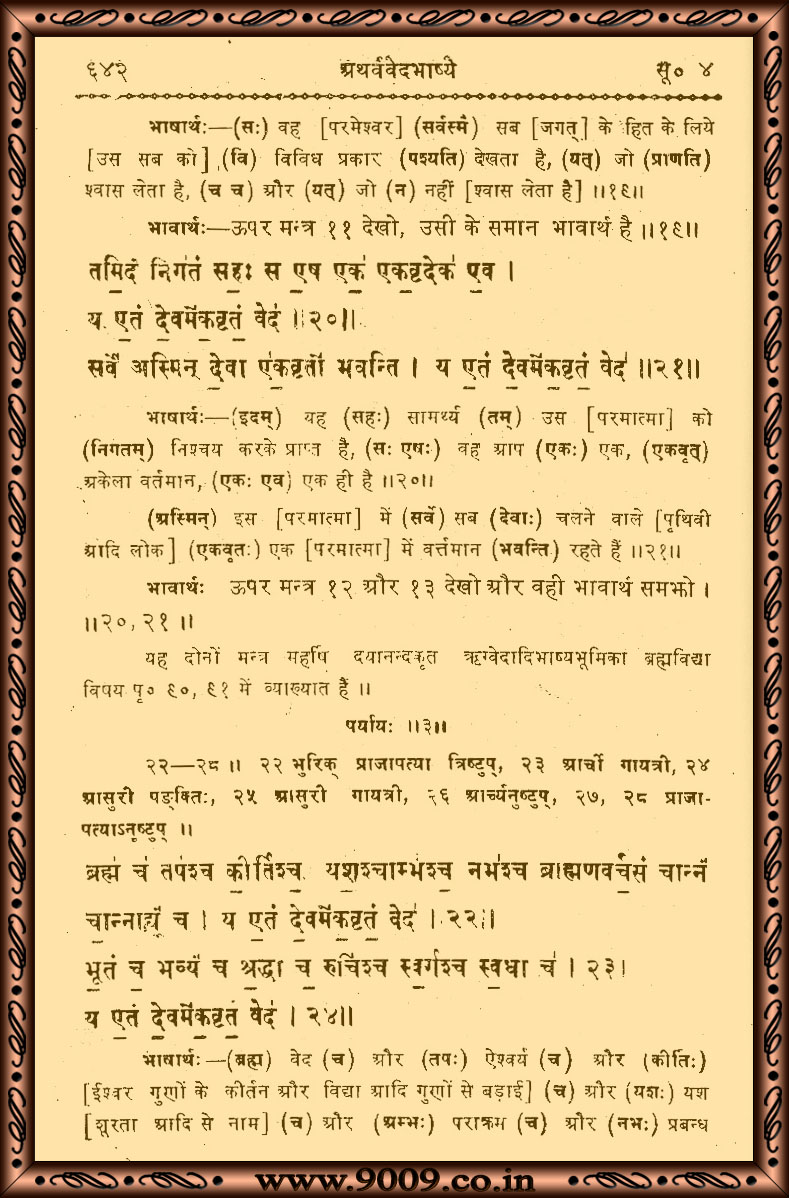 ६४२ अथर्ववेदभाष्ये सू० ४
भाषार्थः—(सः) वह [परमेश्वर] (सर्वस्मै) सब [जगत्] के हित के लिये
[उस सब को] (वि) विविध प्रकार (पश्यति) देखता है, (यत्) जो (प्राणति)
श्वास लेता है, (च च) और (यत्) जो (न) नहीं [श्वास लेता है] ॥१९॥
भावार्थः—ऊपर मन्त्र ११ देखो, उसी के समान भावार्थ है ॥१९॥
तमि॒दं निग॑तं॒ सहः॒ स ए॒ष एक॑ एक॒वृदेक॑ ए॒व ।
य ए॒तं दे॒वमे॑क॒वृतं॒ वेद॑ ॥२०॥
सर्वे॑ अस्मिन् दे॒वा ए॑क॒वृतो॑ भवन्ति । य ए॒तं दे॒वमे॑क॒वृतं॒ वेद॑ ॥२१॥
भाषार्थः—(इदम्) यह (सहः) सामर्थ्य (तम्) उस [परमात्मा] को
(निगतम्) निश्चय करके प्राप्त है, (सः एषः) वह आप (एकः) एक, (एकवृत्)
अकेला वर्तमान, (एकः एव) एक ही है ॥२०॥
(अस्मिन्) इस [परमात्मा] में (सर्वे) सब (देवाः) चलने वाले [पृथिवी
आदि लोक] (एकवृतः) एक [परमात्मा] में वर्त्तमान (भवन्ति) रहते हैं ॥२१॥
भावार्थः ऊपर मन्त्र १२ और १३ देखो और वही भावार्थ समझो ।
॥२०, २१ ॥
यह दोनों मन्त्र महर्षि दयानन्दकृत ऋग्वेदादिभाष्यभूमिका ब्रह्मविद्या
विषय पृ० ९०, ९१ में व्याख्यात हैं ॥
पर्यायः ॥३॥
२२—२८ ॥ २२ भुरिक् प्राजापत्या त्रिष्टुप्, २३ आर्ची गायत्री, २४
आसुरी पङ्क्तिः, २५ आसुरी गायत्री, २६ आर्च्यनुष्टुप्, २७, २८ प्राजा-
पत्याऽनुष्टुप् ॥
ब्रह्म॑ च॒ तप॑श्च की॒र्तिश्च॒ यश॒श्चाम्भ॑श्च॒ नभ॑श्च ब्राह्मणवर्च॒सं चान्नं॑
चा॒न्नाद्यं॑ च । य ए॒तं दे॒वमे॑क॒वृतं॒ वेद॑ ।२२॥
भू॒तं च॒ भव्यं॑ च श्र॒द्धा च॒ रुचि॑श्च स्व॒र्गश्च॑ स्व॒धा च॑ । २३।
य ए॒तं दे॒वमे॑क॒वृतं॒ वेद॑ । २४॥
भाषार्थः—(ब्रह्म) वेद (च) और (तपः) ऐश्वर्य (च) और (कीर्तिः)
[ईश्वर गुणों के कीर्तन और विद्या आदि गुणों से बड़ाई] (च) और (यशः) यश
[शूरता आदि से नाम] (च) और (अम्भः) पराक्रम (च) और (नभः) प्रबन्ध
www.9009.co.in